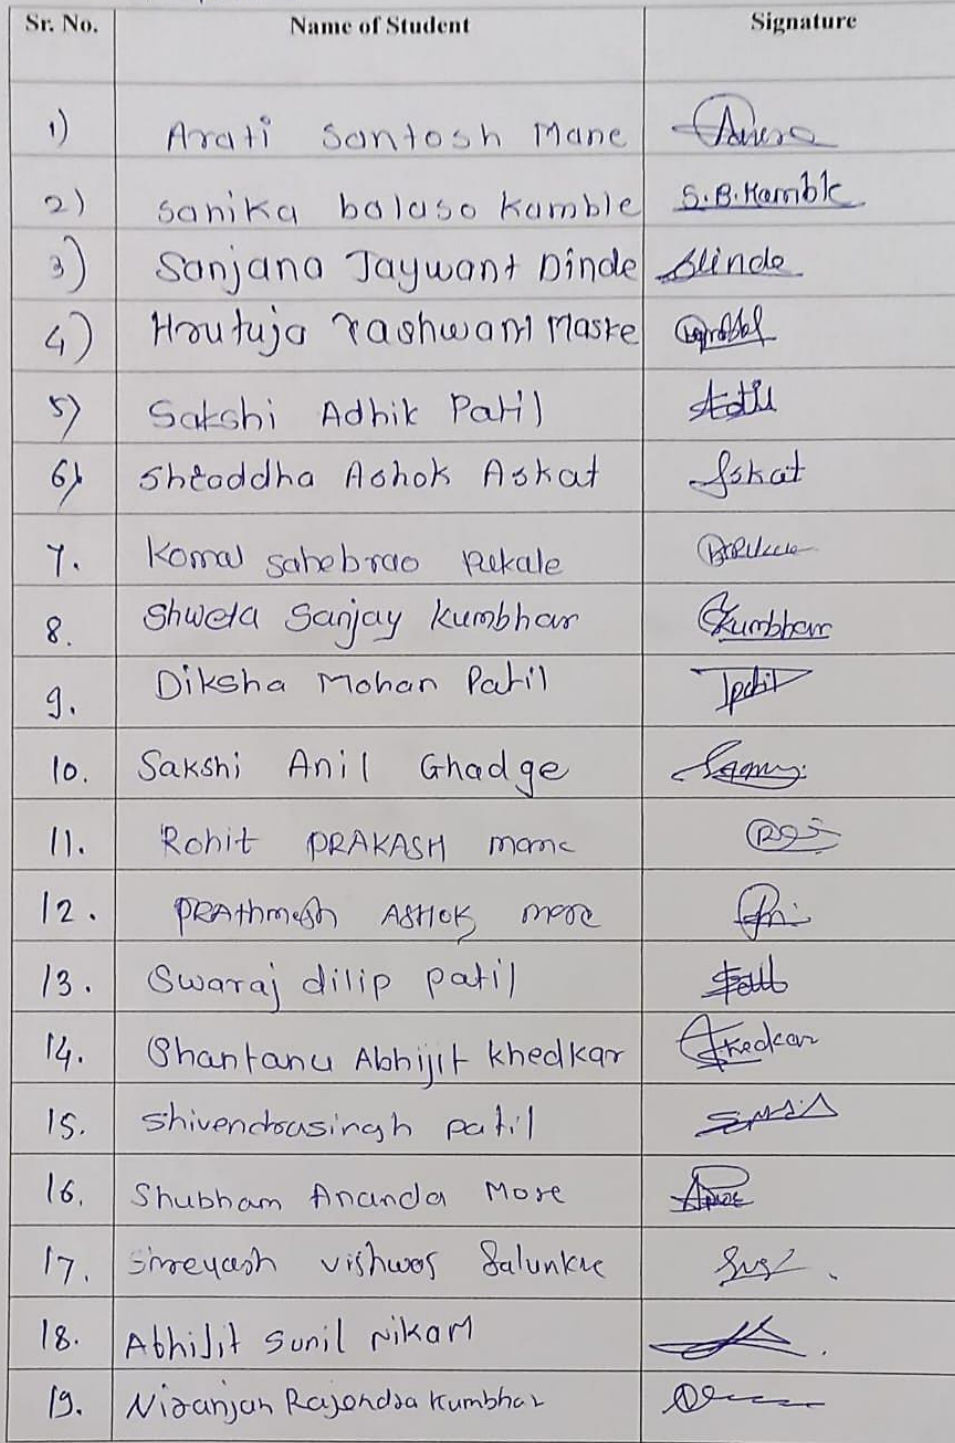 Sr. No. Name of Student Signature
1) Arati Santosh Mane
2) Sanika balaso Kamble S.B.Kamble
3) Sanjana Jaywant Dinde Dinde
4) Hrutuja Yashwant Maske
5) Sakshi Adhik Patil
6) Shraddha Ashok Askat Askat
7. Komal sahebrao Rekale
8. Shweta Sanjay Kumbhar Kumbhar
9. Diksha Mohan Patil
10. Sakshi Anil Ghadge
11. Rohit PRAKASH mane
12. PRAthmesh ASHOK more
13. Swaraj dilip patil
14. Shantanu Abhijit khedkar Khedkar
15. Shivendrasingh patil
16. Shubham Ananda More
17. Shreyash vishwas Salunkhe
18. AbhiJit Sunil NikaM
19. Niranjan Rajendra Kumbhar